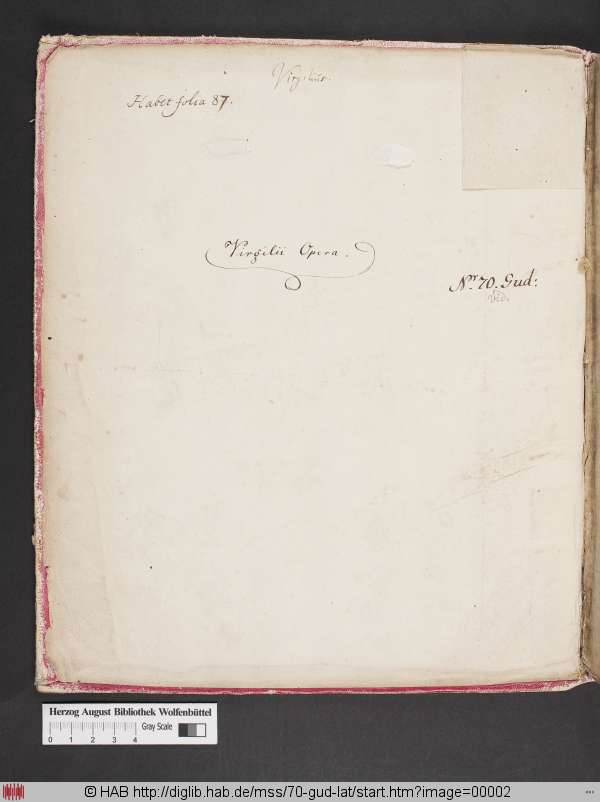 Virgilius.
Habet folia 87.
Virgilii Opera.
Nr. 70. Gud:
vid.
Herzog August Bibliothek Wolfenbüttel
Gray Scale
0 1 2 3 4
© HAB http://diglib.hab.de/mss/70-gud-lat/start.htm?image=00002